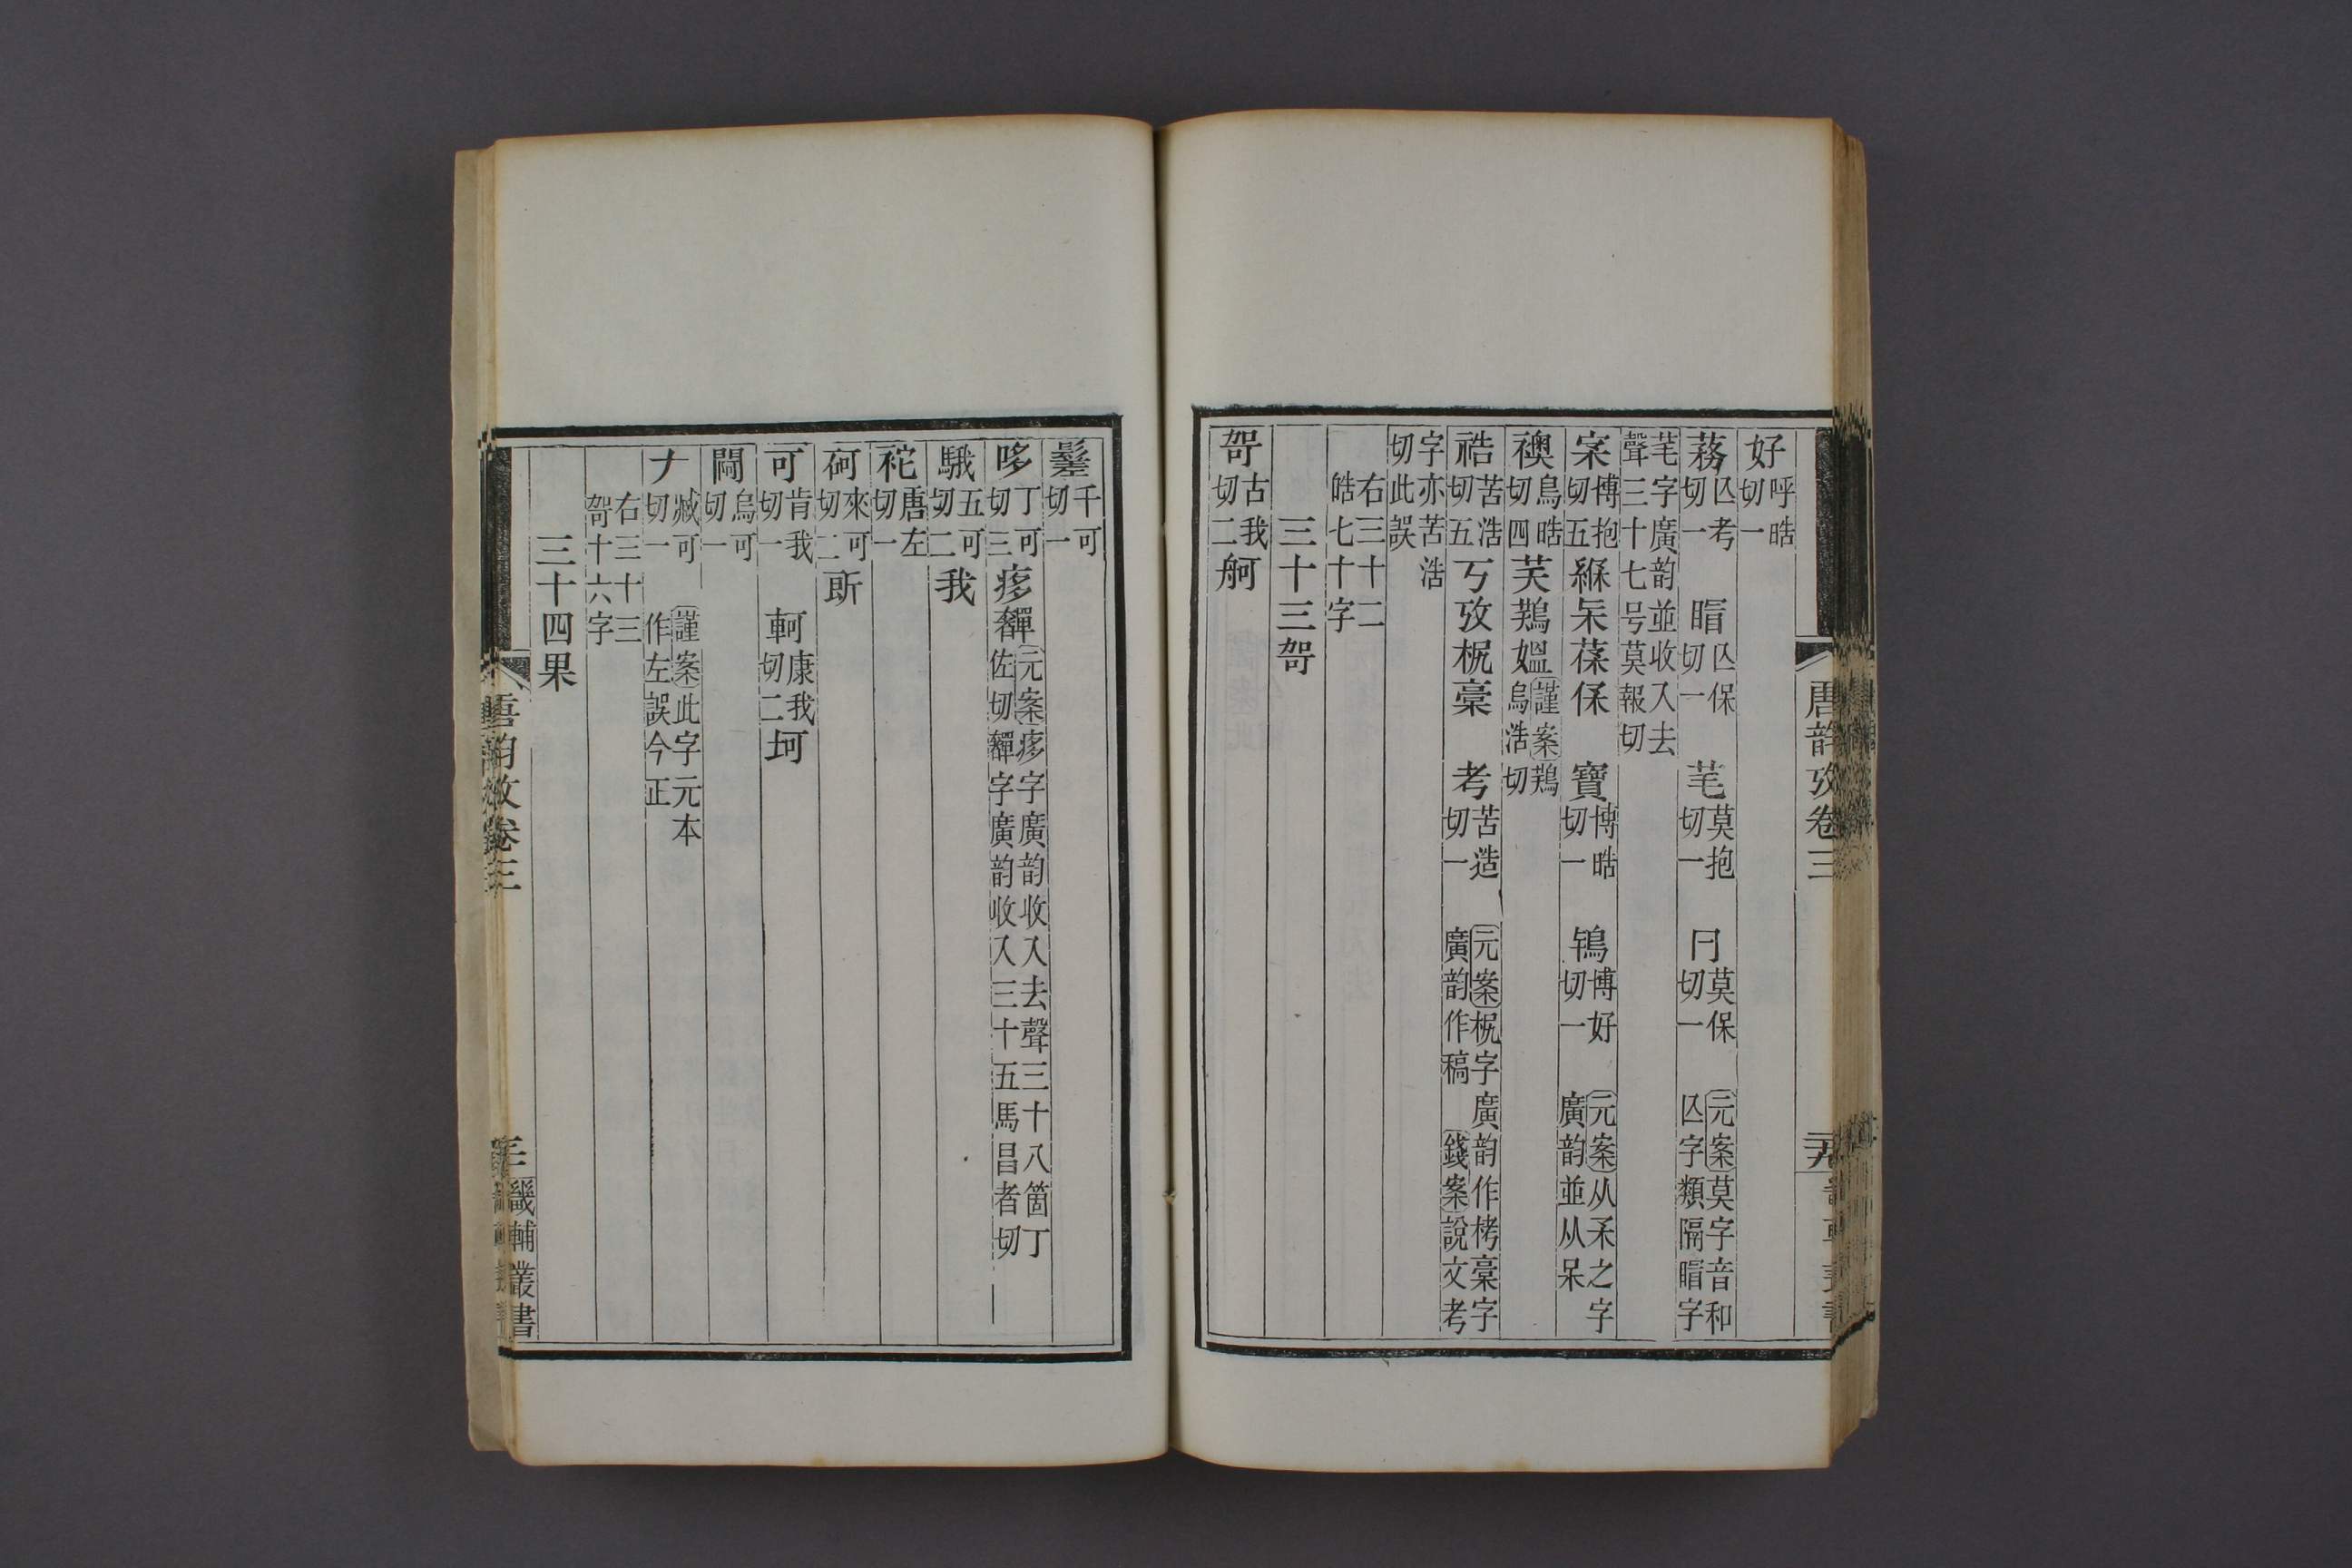 唐韵攷卷三
好呼晧切一
蓩亾考切一 㫯亾保切一 芼莫抱切一 冃莫保切一 元案莫字音和亾字類隔㫯字
芼字廣韵並收入去聲三十七号莫報切
宲博抱切五緥𣎼葆保 寶博晧切一 鴇博好切一 元案从𣎼之字廣韵並从呆
襖烏晧切四芺鴹媼謹案鴹烏浩切
祰苦浩切五丂攷柷槀 考苦造切一 元案柷字廣韵作稿 廣韵作栲槀字 錢案說文考
字亦苦浩切此誤
右三十二晧七十字
三十三哿
哿古我切二舸
鬗千可切一
哆丁可切三痑奲元案痑字廣韵收入去聲三十八箇丁佐切奲字廣韵收入三十五馬昌者切
騀五可切二我
袉唐左切一
砢來可切二㪽
可肯我切一 軻康我切二坷
閜烏可切一
𠂇臧可切一 謹案此字元本作左誤今正
右三十三哿十六字
三十四果
畿輔叢書